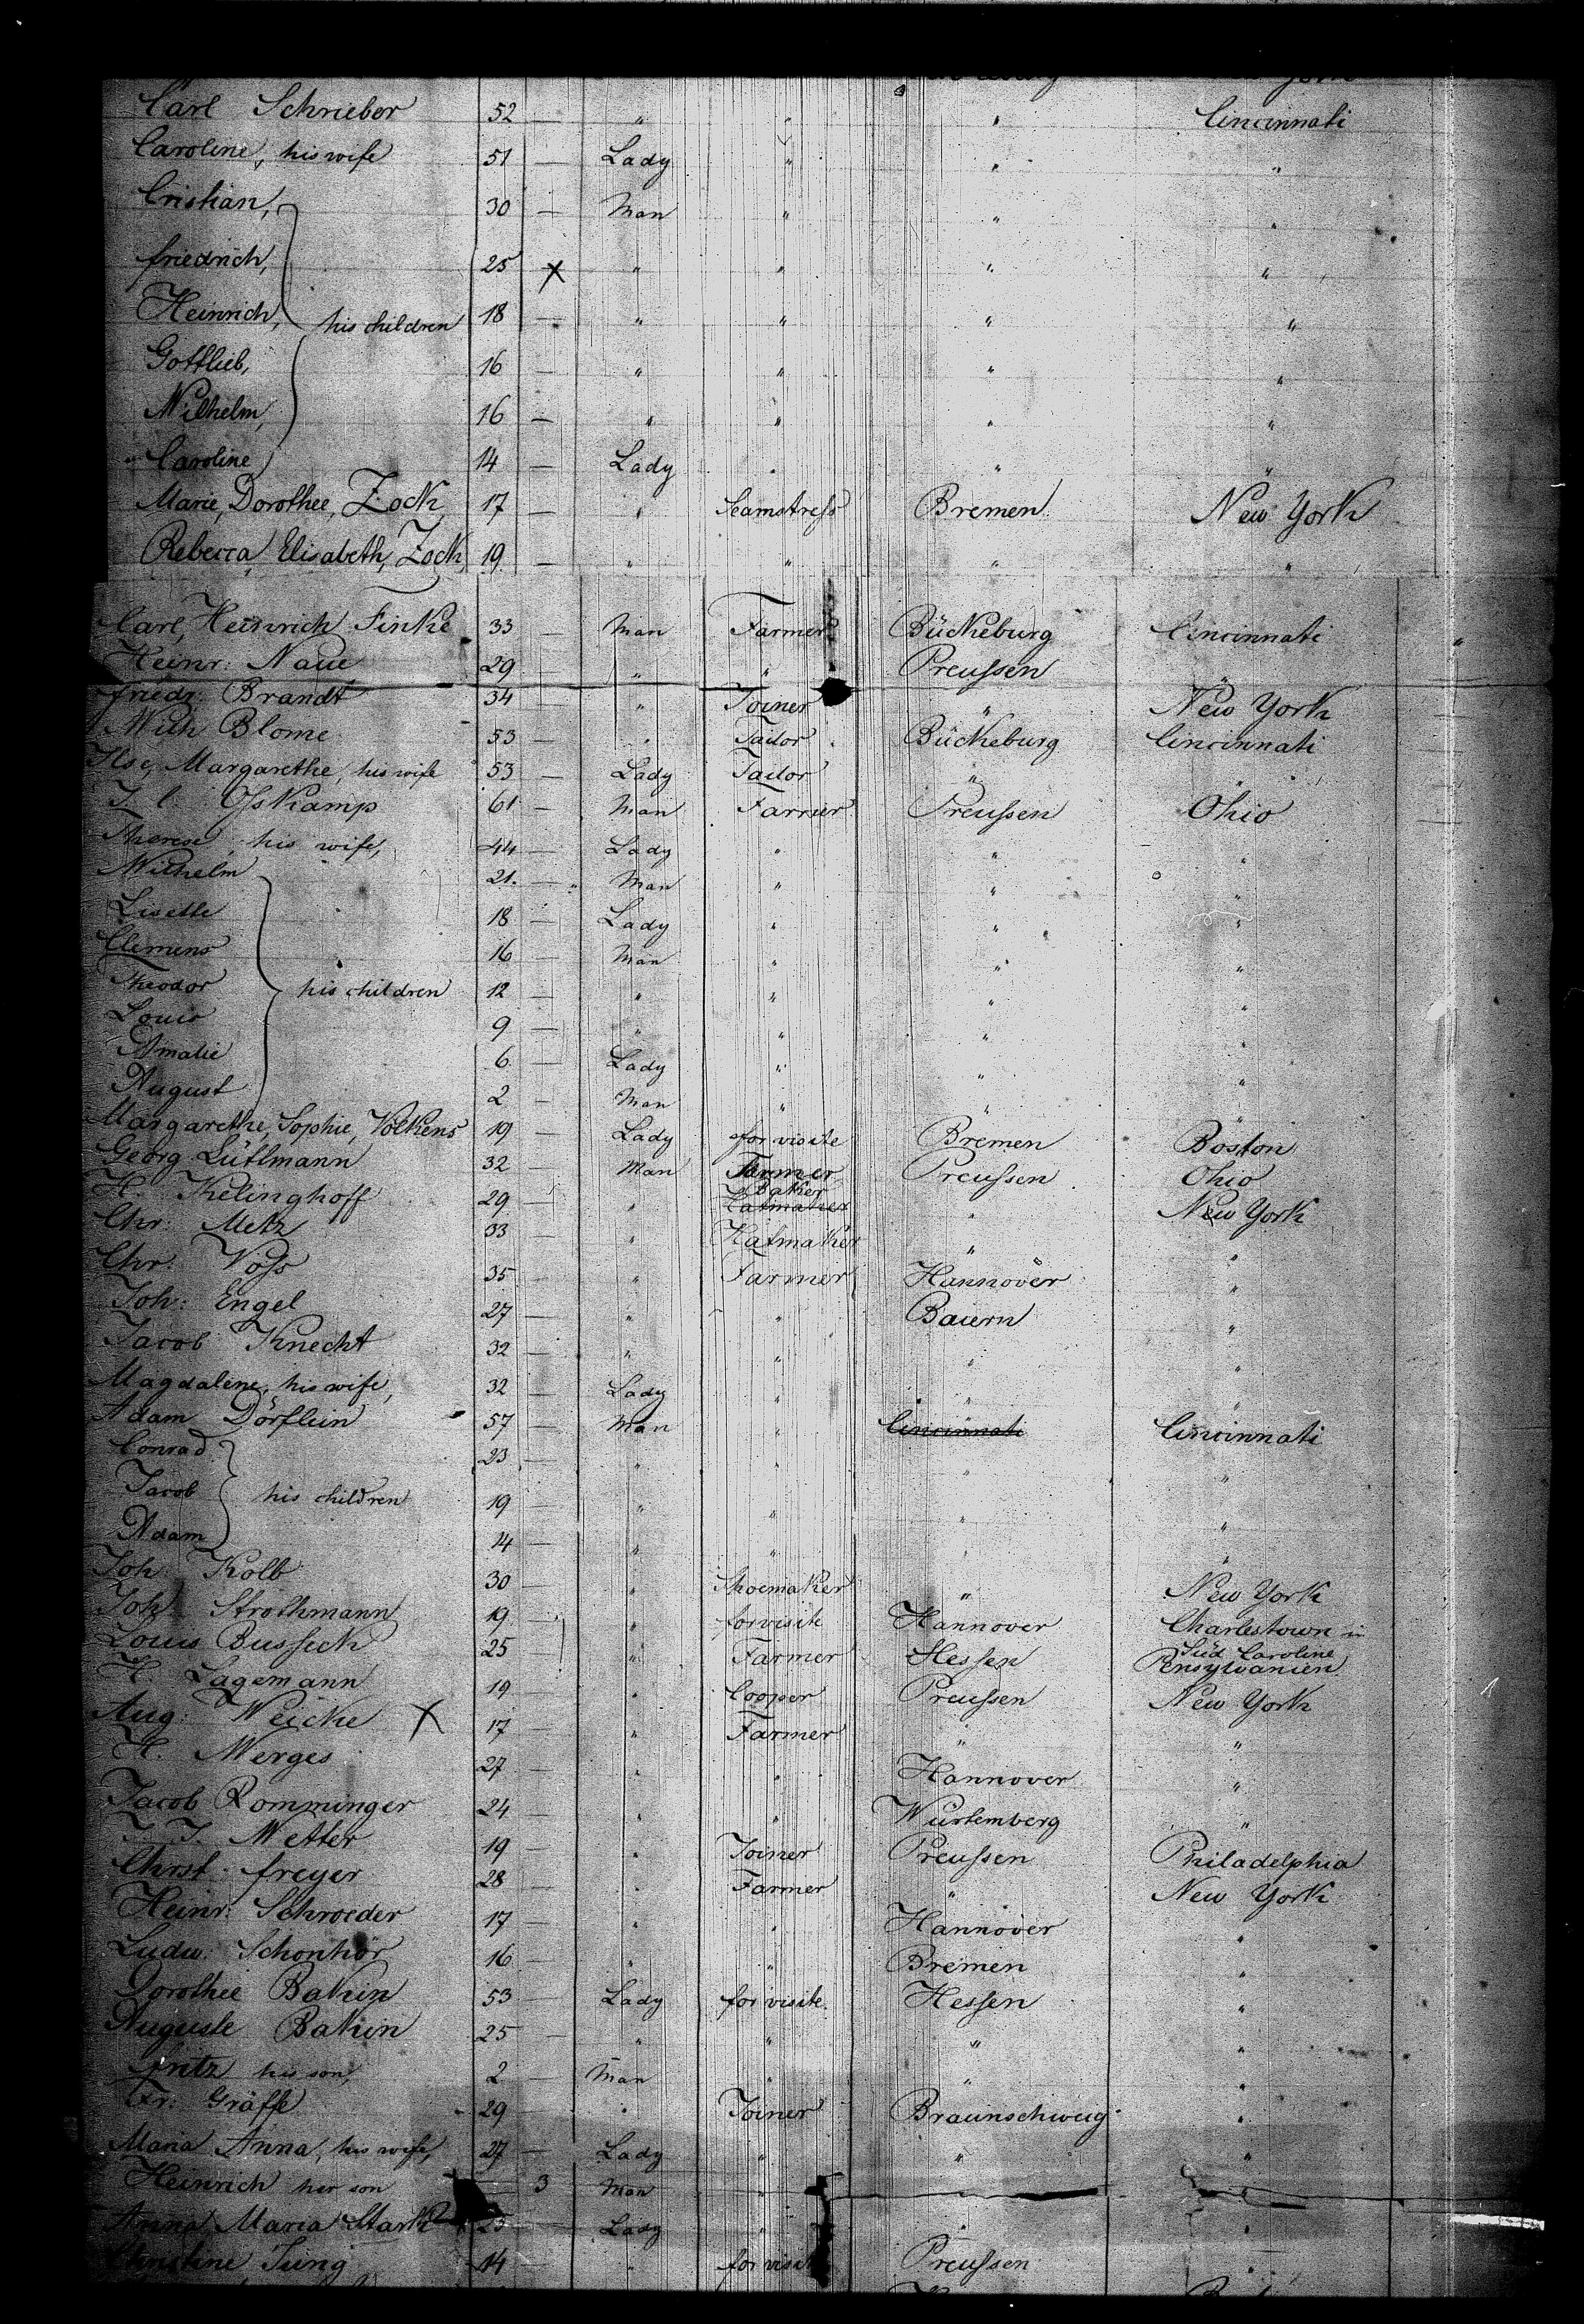 Carl Schrieber 52 — " " " Cincinnati
Caroline, his wife 51 — Lady " " "
Cristian, 30 — Man " " "
friedrich, 25 X " " " "
Heinrich, his children 18 — " " " "
Gottlieb, 16 — " " " "
Wilhelm, 16 — " " " "
" Caroline 14 — Lady " " "
Marie, Dorothee, Zock 17 — " Seamstress Bremen New York
Rebecca, Elisabeth, Zock, 19. — " " " "
Carl, Heinrich Finke 33 — Man Farmer Bückeburg Cincinnati
Heinr: Naue 29 — " " Preussen "
friedr: Brandt 34 — " Joiner " New York
Wilh Blome 53 — " Tailor Bückeburg Cincinnati
Ilse, Margarethe, his wife 53 — Lady Tailor " "
Osskamp 61 — Man Farmer Preussen Ohio
Therese, his wife, 44 — Lady " " "
Wilhelm 21. — Man " " "
Lisette 18 — Lady " " "
Clemens 16 — Man " " "
Theodor his children 12 — " " " "
Louis 9 — " " " "
Amalie 6 — Lady " " "
August 2 — Man " " "
Margarethe, Sophie, Volkens 19 — Lady for visite Bremen Boston
Georg Lütlmann 32 — Man Farmer Preussen Ohio
H. Kelinghoff 29 — " Baker Hatmaker " New York
Chr: Metz 33 — " Hatmaker " "
Chr: Voss 35 — " Farmer Hannover "
Joh: Engel 27 — " " Baiern "
Jacob Knecht 32 — " " " "
Magdalene, his wife, 32 — Lady " " "
Adam Dörflein 57 — Man " Cincinnati Cincinnati
Conrad 23 — " " " "
Jacob his children 19 — " " " "
Adam 14 — " " " "
Joh: Kolb 30 — " Shoemaker " New York
Joh: Strothmann 19 — " for visite Hannover Charlestown in
Süd Caroline
Louis Busseck 25 — " Farmer Hessen Pensylvanien
H. Lagemann 19 — " Cooper Preussen New York
Aug: Weicke X 17 — " Farmer " "
H. Werges 27 — " " Hannover "
Jacob Romminger 24 — " " Würtemberg "
J. J. Wetter 19 — " Joiner Preussen Philadelphia
Christ: freyer 28 — " Farmer " New York
Heinr: Schroeder 17 — " " Hannover "
Ludw: Schonhör 16 — " " Bremen "
Dorothee Bakin 53 — Lady for visite Hessen "
Auguste Bakin 25 — " " " "
fritz his son, 2 — Man " " "
Fr: Gräffe 29 — " Joiner Braunschweig "
Maria Anna, his wife, 27 — Lady " " "
Heinrich her son — 3 Man " " "
Anna Maria Stark 25 — Lady " " "
Christine Jung 14 — " for visite Preussen "